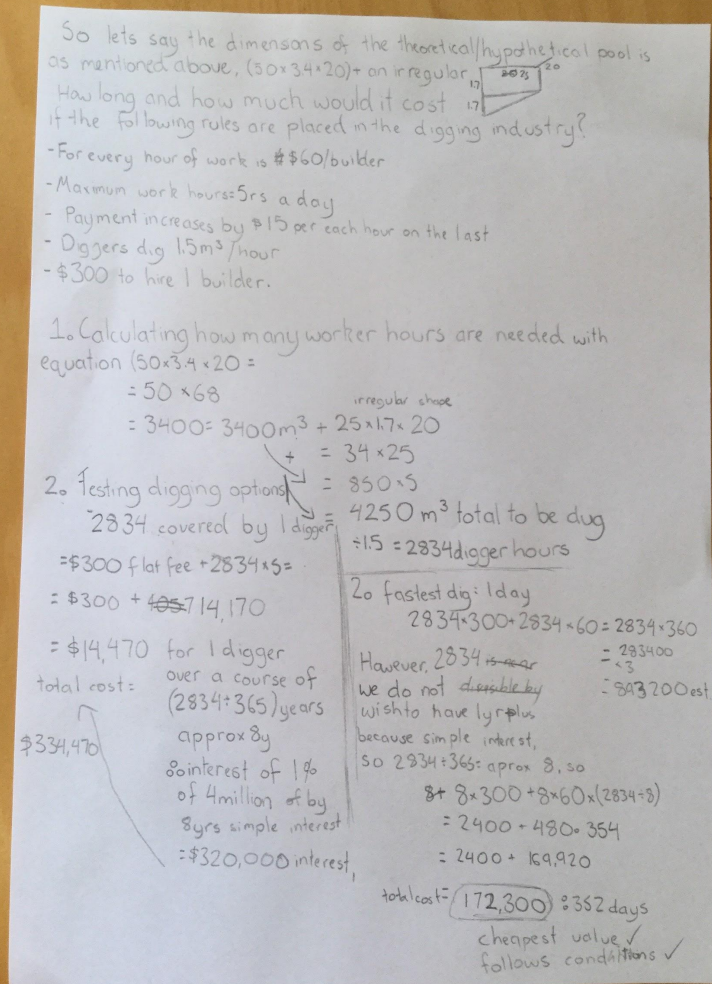 So lets say the dimensons of the theoretical/hypothetical pool is
as mentioned above, (50×3.4×20)+ an irregular
20
1.7
1.7
How long and how much would it cost
if the following rules are placed in the digging industry?
-For every hour of work is $60/builder
-Maximum work hours=5rs a day
- Payment increases by $15 per each hour on the last
- Diggers dig 1.5m³/hour
-$300 to hire 1 builder.
1. Calculating how many worker hours are needed with
equation (50×3.4×20=
= 50×68
irregular shape
= 3400= 3400m³ + 25×1.7×20
+ = 34×25
= 850
= 4250 m³ total to be dug
÷1.5 = 2834 digger hours
2. Testing digging options
-2834 covered by 1 digger
=$300 flat fee +2834×5=
= $300 + 14,170
= $14,470 for 1 digger
over a course of
(2834÷365) years
approx 8y
∴interest of 1%
of 4million of by
8yrs simple interest
=$320,000 interest,
total cost=
$334,470
2. fastest dig: 1day
2834×300+2834×60=2834×360
= 283400
×3
=893200est
However, 2834
we do not
wish to have 1yr plus
because simple interest,
so 2834÷365= aprox 8, so
8×300+8×60×(2834÷8)
= 2400 + 480·354
= 2400 + 169,920
total cost= 172,300 :352 days
cheapest value ✓
follows conditions ✓